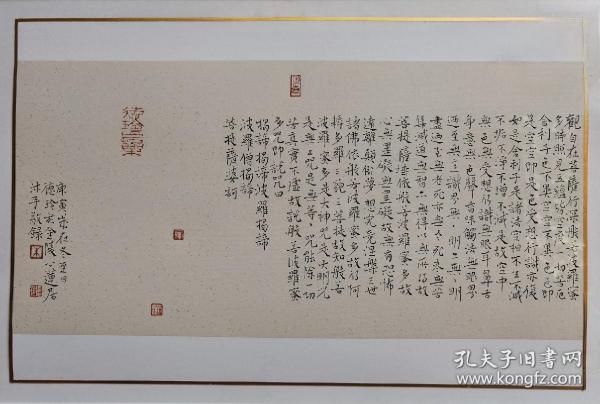 觀自在菩薩行深般若波羅蜜
多時照見五蘊皆空度一切苦厄
舍利子色不異空空不異色色即
是空空即是色受想行識亦復
如是舍利子是諸法空相不生不滅
不垢不淨不增不減是故空中
無色無受想行識無眼耳鼻舌
身意無色聲香味觸法無眼界
迺至無意識界無無明亦無無明
盡迺至無老死亦無老死盡無苦
集滅道無智亦無得以無所得故
菩提薩埵依般若波羅蜜多故
心無罣礙無罣礙故無有恐怖
遠離顛倒夢想究竟涅槃三世
諸佛依般若波羅蜜多故得阿
耨多羅三藐三菩提故知般若
波羅蜜多是大神咒是大明咒
是無上咒是無等等咒能除一切
苦真實不虛故說般若波羅蜜
多咒即說咒曰
揭諦揭諦波羅揭諦
波羅僧揭諦
菩提薩婆訶
庚寅歲在冬至日
德玲於金陵心蓮居
沐手敬錄
孔夫子旧书网
www.kongfz.com